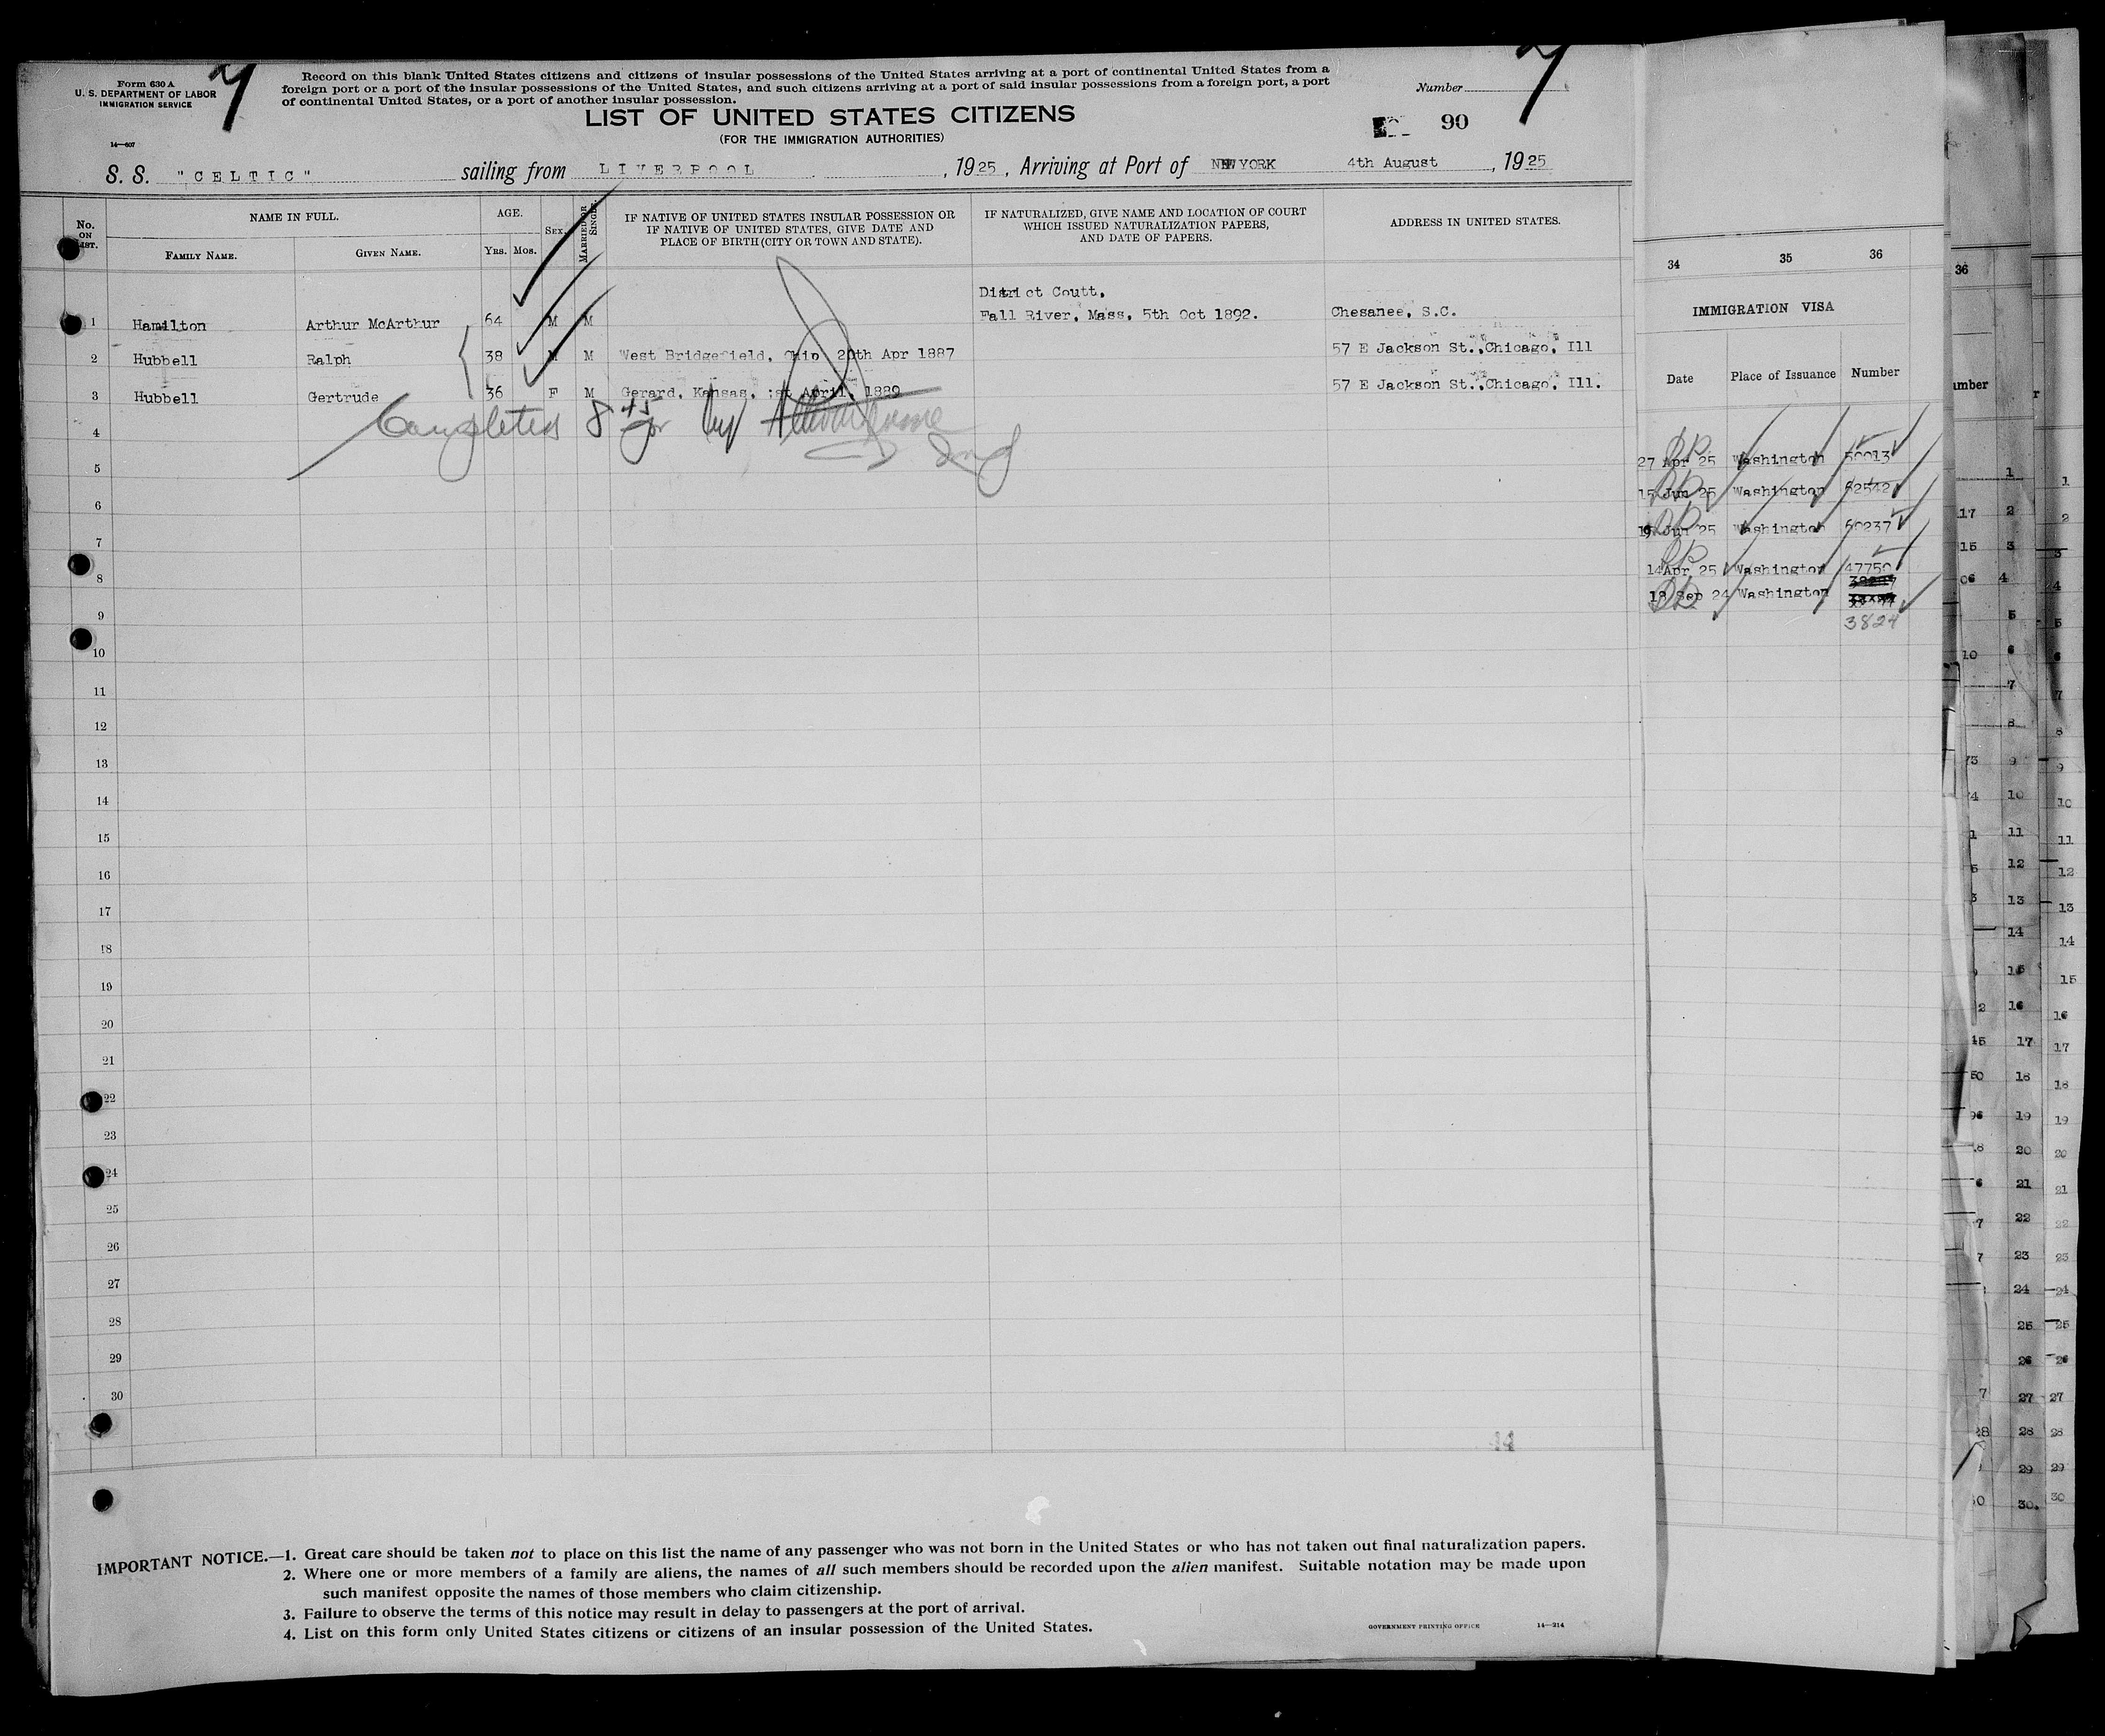 Form 630 A
U. S. DEPARTMENT OF LABOR
IMMIGRATION SERVICE
14—607
Record on this blank United States citizens and citizens of insular possessions of the United States arriving at a port of continental United States from a
foreign port or a port of the insular possessions of the United States, and such citizens arriving at a port of said insular possessions from a foreign port, a port
of continental United States, or a port of another insular possession.
Number
LIST OF UNITED STATES CITIZENS
90
(FOR THE IMMIGRATION AUTHORITIES)
S. S. "CELTIC" sailing from LIVERPOOL , 1925 , Arriving at Port of NEW YORK 4th August , 1925
No. ON LIST.
NAME IN FULL.
FAMILY NAME. GIVEN NAME.
AGE.
YRS. MOS.
SEX.
MARRIED OR SINGLE.
IF NATIVE OF UNITED STATES INSULAR POSSESSION OR
IF NATIVE OF UNITED STATES, GIVE DATE AND
PLACE OF BIRTH (CITY OR TOWN AND STATE).
IF NATURALIZED, GIVE NAME AND LOCATION OF COURT
WHICH ISSUED NATURALIZATION PAPERS,
AND DATE OF PAPERS.
ADDRESS IN UNITED STATES.
District Coutt,
1 Hamilton Arthur McArthur 64 M M Fall River, Mass, 5th Oct 1892. Chesanee, S.C.
2 Hubbell Ralph 38 M M West Bridgefield, Ohio 20th Apr 1887 57 E Jackson St., Chicago, Ill
3 Hubbell Gertrude 36 F M Gerard, Kansas, :st April, 1889 57 E Jackson St., Chicago, Ill.
Completed 8 45 by
4
5
6
7
8
9
10
11
12
13
14
15
16
17
18
19
20
21
22
23
24
25
26
27
28
29
30
34 35 36
IMMIGRATION VISA
Date Place of Issuance Number
27 Apr 25 Washington 50013
15 Jun 25 Washington 62542
19 Jun 25 Washington 60237
14 Apr 25 Washington 47750
18 Sep 24 Washington
3824
IMPORTANT NOTICE.—1. Great care should be taken not to place on this list the name of any passenger who was not born in the United States or who has not taken out final naturalization papers.
2. Where one or more members of a family are aliens, the names of all such members should be recorded upon the alien manifest. Suitable notation may be made upon
such manifest opposite the names of those members who claim citizenship.
3. Failure to observe the terms of this notice may result in delay to passengers at the port of arrival.
4. List on this form only United States citizens or citizens of an insular possession of the United States.
GOVERNMENT PRINTING OFFICE 14—214